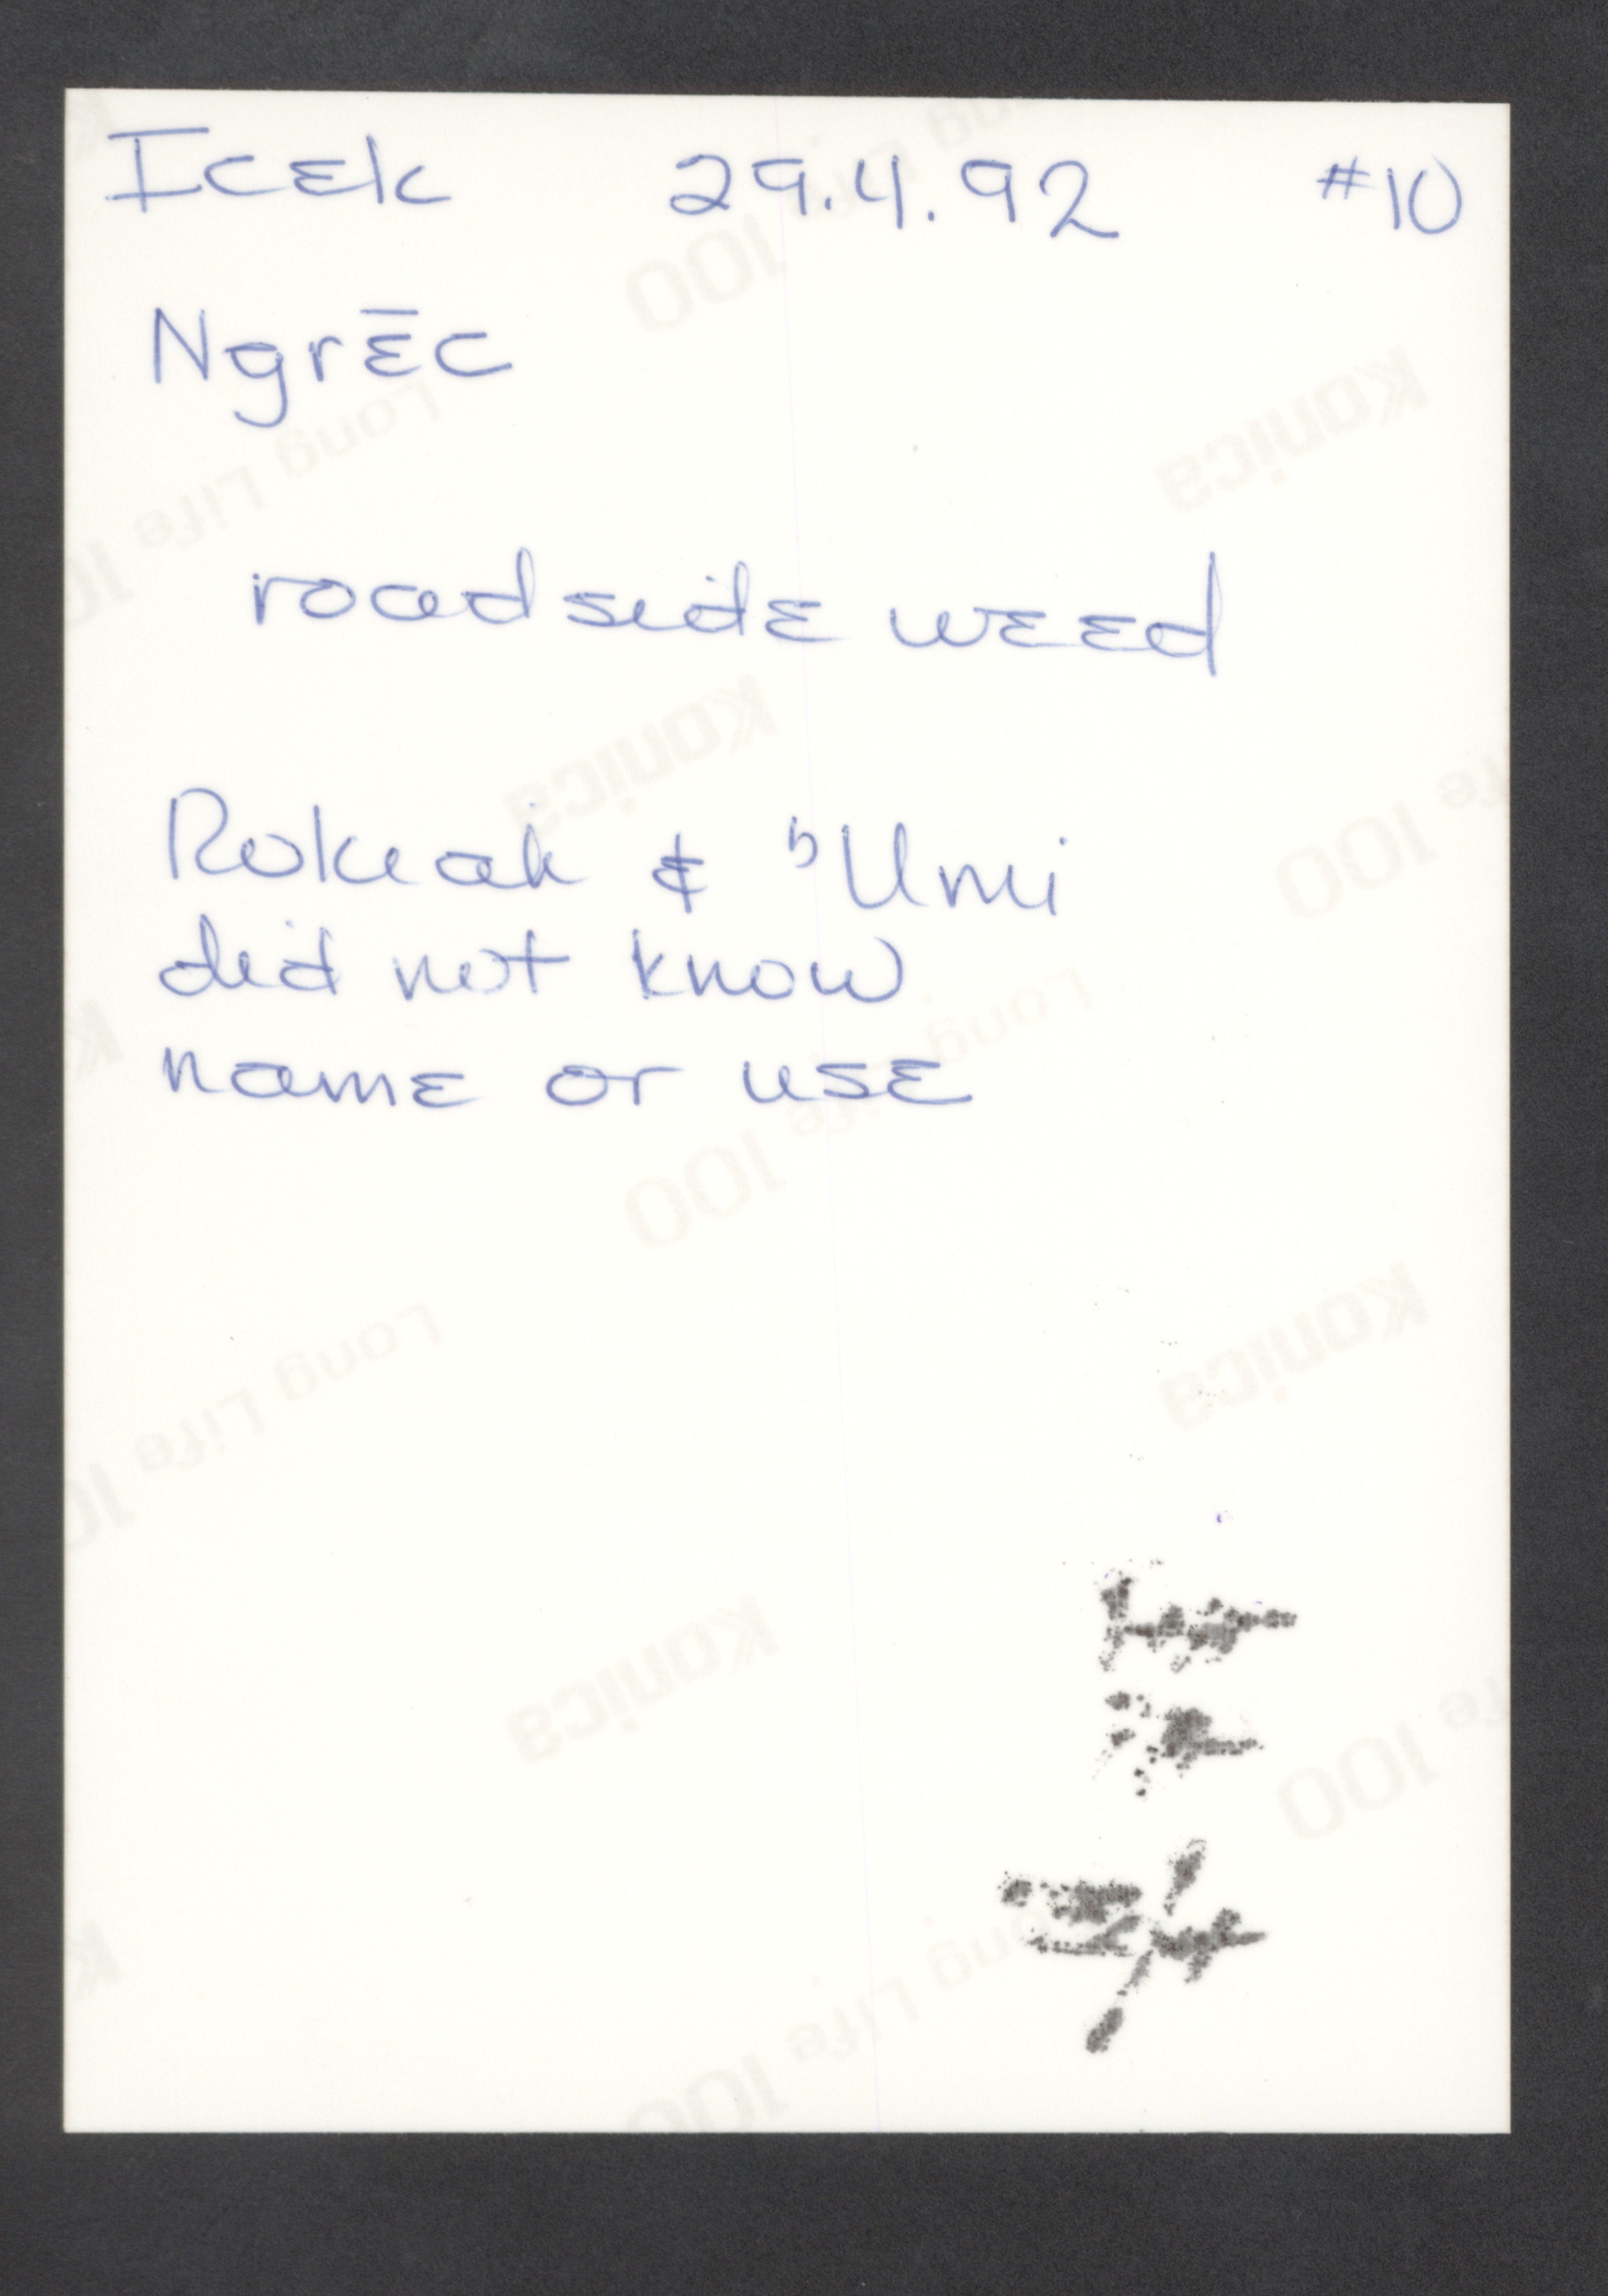 Icek 29.4.92 #10
Ngrēc
roadside weed
Rokiah & ʾUmi
did not know
name or use
Konica
Long Life 100